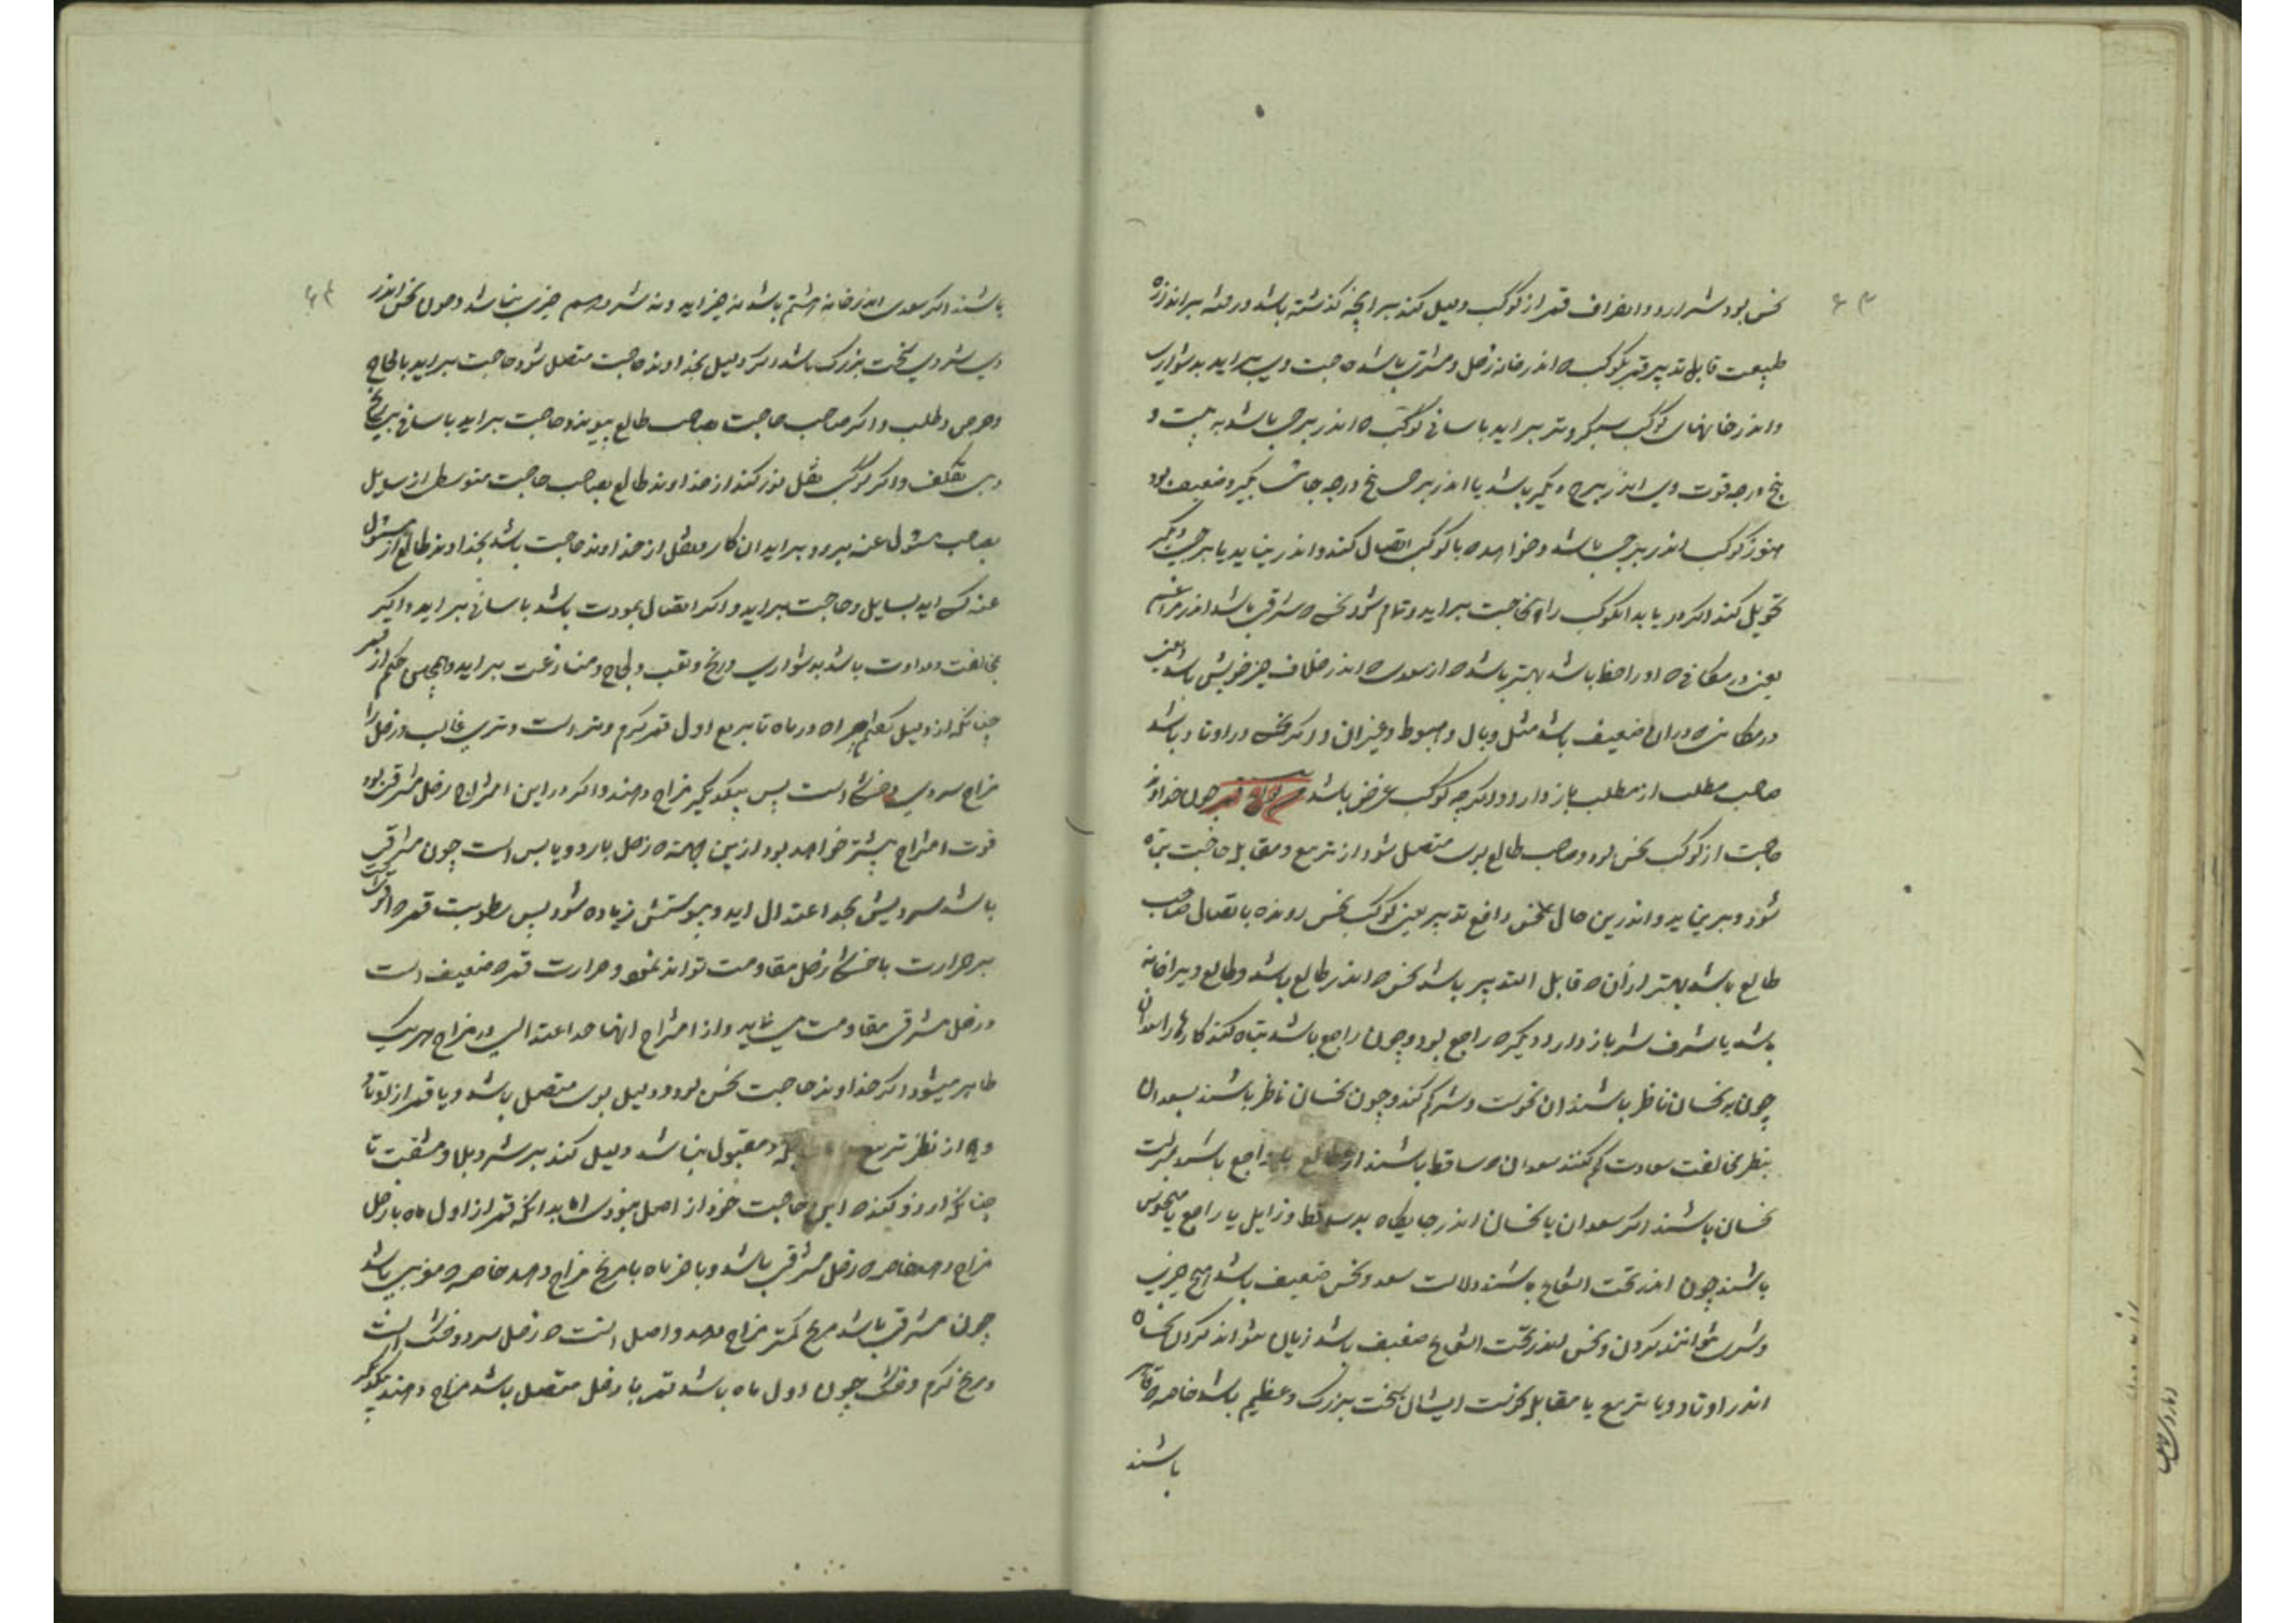 نحس بود شر ارد و انصراف قمر از کوکب دلیل کند بر انچه کذشته باشد و رفته بر اندازه
طبیعت قابل تدبیر قمر بکوکب که اندر خانه زحل و مشتری باشد حاجت وی براید بدشواری
و اندر خانهای کوکب سبکروتر براید باسانی کوکب که اندر برجی باشد به بیست و
پنج درجه قوت وی اندر برج دیگر باشد یا اندر برج پنج درجه جاش بگیرد ضعیف بود
هنوز کوکب اندر برجی باشد و خواهد که با کوکب اتصال کند و اندر نیابد یا برجی دیگر
تحویل کند اکر دریابد انکوکب را و حاجت براید و تمام شود نحس که مشرقی باشد اندر
یعنی در مکانی که او را حظ باشد بهتر باشد که از سعدی که اندر خلاف حیز خویش باشد یعنی
در مکانی که دران ضعیف باشد مثل وبال و هبوط و غیر ان و اکر نحس در اوتاد باشد
صاحب مطلب از مطلب باز دارد و اکرچه کوکب غرض باشد چون خداوند
حاجت از کوکب نحس بود و صاحب طالع بوی متصل شود از تربیع و مقابله حاجت تباه
شود و برنیاید و اندرین حال نحس دافع تدبیر یعنی کوکب نحس رونده باتصال صاحب
طالع باشد بهتر ازان که قابل التدبیر باشد نحس که اندر طالع باشد و طالع ویرا خانه
باشد یا شرف شر باز دارد دیگر که راجع بود و چون راجع باشد تباه کند کارها را سعدان
چون بر نحسان ناظر باشند ان نحوست و شر کم کند و چون نحسان ناظر باشند بسعدان
بنظر مخالفت سعادت کم کنند سعدان که ساقط باشند از طالع یا راجع باشند بمنزلت
نحسان باشند اکر سعدان یا نحسان اندر جایکاه بد ساقط و زایل یا راجع یا منحوس
باشند چون اندر تحت الشعاع باشند دلالت سعد و نحس ضعیف باشد هیچ خیری
و شری نتوانند کردن و نحس اندر تحت الشعاع ضعیف باشد زیان نتواند کردن نحسان
اندر اوتاد و یا تربیع یا مقابله نحوست ایشان سخت بزرک و عظیم باشد خاصه که
باشند
باشند اکر سعدی اندر خانه هشتم باشد نه خیر اید و نه شر و هم چیزی نباشد و چون نحس اندر
وی شر وی سخت بزرک باشد اکر دلیل بخداوند حاجت متصل شود حاجت براید بالحاح
و حرص و طلب و اکر صاحب حاجت بصاحب طالع پیوندد حاجت براید باسانی بی رنج
و بی تکلف و اکر کوکبی نقل نور کند از خداوند طالع بصاحب حاجت متوسطی از سایل
بصاحب مسئول عنه برود براید ان کار و نقل از خداوند حاجت باشد بخداوند طالع از مسئول
عنه کسی اید بسایل و حاجت براید و اکر اتصال بمودت باشد باسانی براید و اکر
بمخالفت و عداوت باشد بدشواری و رنج و تعب و لجاج و منازعت براید و همچنین حکم از قمر
چنانکه از دلیل در ماه تا تربیع اول قمر کرم و تر است و تری غالب و زحل را
مزاج سردی و خشکی است پس بیکدیکر مزاج دهند و اکر در این امتزاج زحل مشرقی بود
قوت امتزاج بیشتر خواهد بود ازین جهة که زحل بارد و یابس است چون مشرقی
باشد سردیش بحد اعتدال اید و یبوستش زیاده شود پس رطوبت قمر که
بر حرارت با خشکی زحل مقاومت تواند نمود و حرارت قمر که ضعیف است
و زحل مشرقی مقاومت می نماید و از امتزاج انها حد اعتدالی در مزاج هر یک
ظاهر میشود اکر خداوند حاجت نحس بود و دلیل بوی متصل باشد و یا قمر از اوتاد
و یا از نظر تربیع و مقبول نباشد دلیل کند بر شر و بلا و مشقت تا
چنانکه ارزو کند که این حاجت خود از اصل نبودی بدانکه قمر از اول ماه با زحل
مزاج دهد خاصه که زحل مشرقی باشد و باخر ماه با مریخ مزاج دهد خاصه که مغربی باشد
چون مشرقی باشد مریخ کمتر مزاج دهد و اصل انست که زحل سرد و خشک است
و مریخ کرم و خشک چون اول ماه باشد قمر با زحل متصل باشد مزاج دهند بیکدیکر